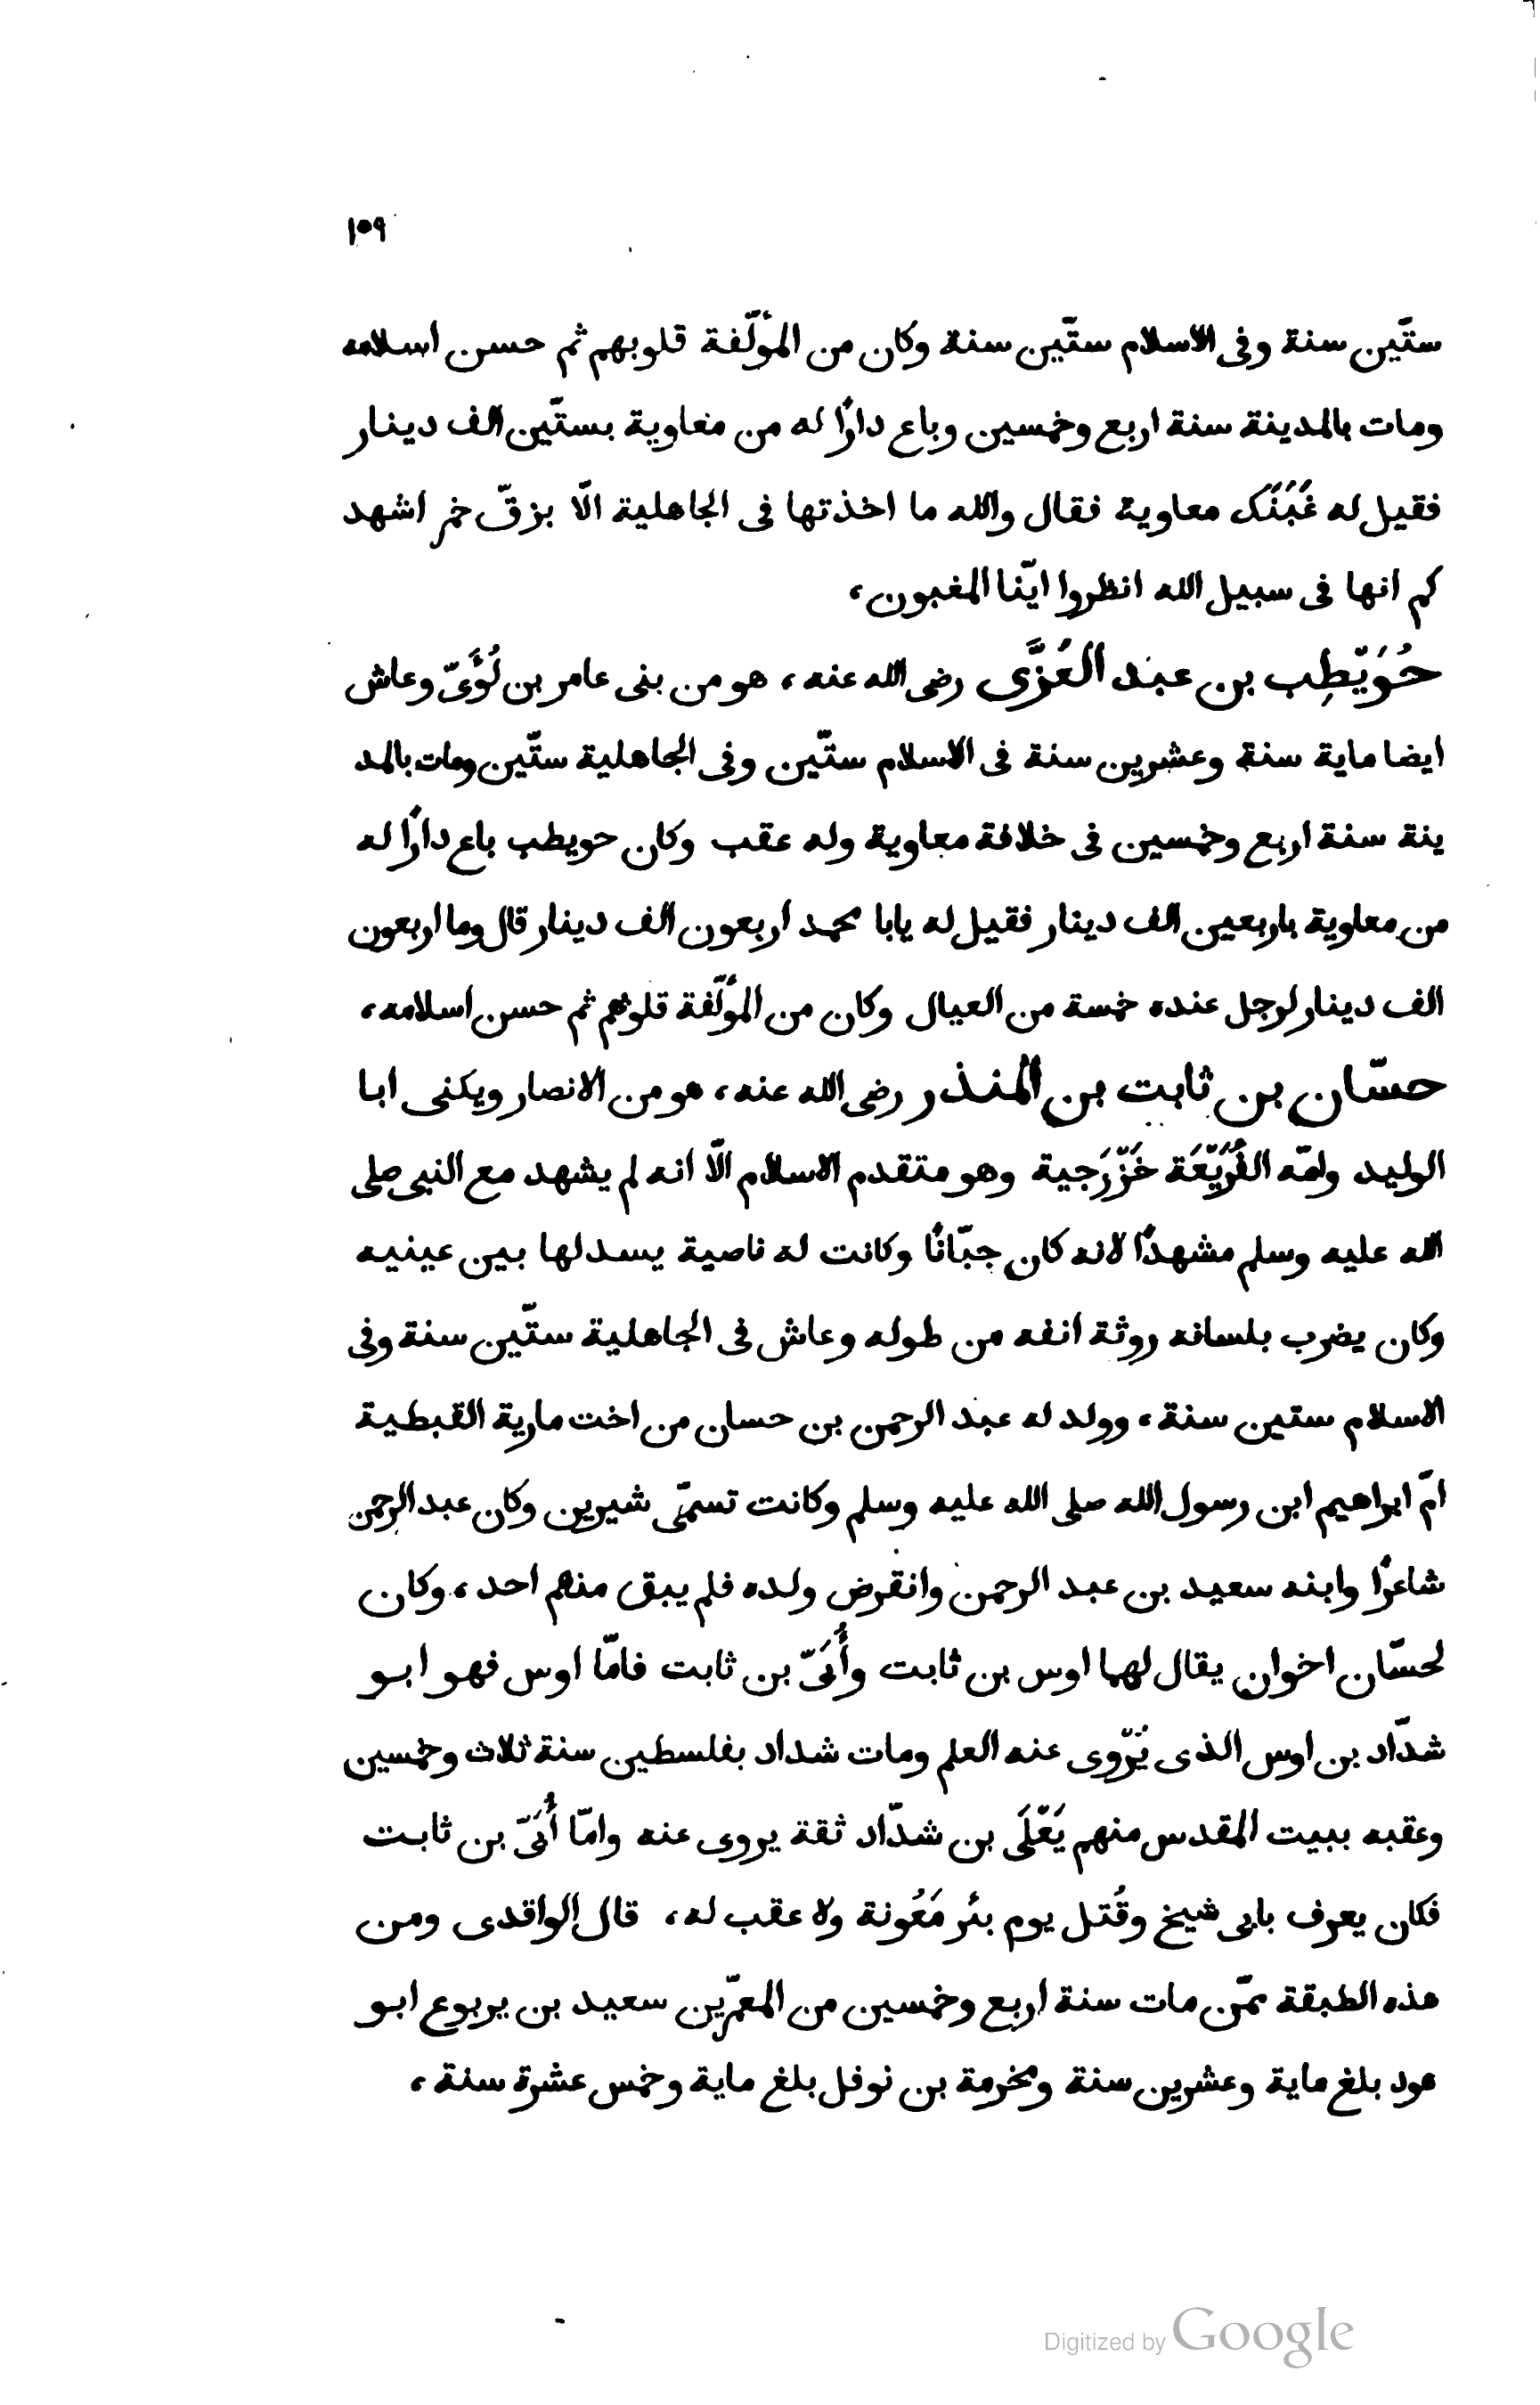 ١٥٩
ستّين سنة وفى الاسلام ستّين سنة وكان من المؤلّفة قلوبهم ثم حسن اسلامه
ومات بالمدينة سنة اربع وخمسين وباع دارًا له من معاوية بستّين الف دينار
فقيل له غَبَنَك معاوية فقال والله ما اخذتها فى الجاهلية الّا بزقّ خمر اشهد
كم انها فى سبيل الله انظروا ايّنا المغبون،
حُوَيّطِب بن عبد العُزَّى رضى الله عنه، هو من بنى عامر بن لُؤَىّ وعاش
ايضا ماية سنة وعشرين سنة فى الاسلام ستّين وفى الجاهلية ستّين ومات بالمد
ينة سنة اربع وخمسين فى خلافة معاوية وله عقب وكان حويطب باع دارًا له
من معاوية باربعين الف دينار فقيل له يابا محمد اربعون الف دينار قال وما اربعون
الف دينار لرجل عنده خمسة من العيال وكان من المؤلّفة قلوبهم ثم حسن اسلامه،
حسّان بن ثابت بن المنذر رضى الله عنه، هو من الانصار ويكنى ابا
الوليد وامّه الفُرَيّعَة خَزّرَجية وهو متقدم الاسلام الّا انه لم يشهد مع النبى صلى
الله عليه وسلم مشهدًا لانه كان جبّانًا وكانت له ناصية يسدلها بين عينيه
وكان يضرب بلسانه روثة انفه من طوله وعاش فى الجاهلية ستّين سنة وفى
الاسلام ستين سنة، وولد له عبد الرحمن بن حسان من اخت مارية القبطية
امّ ابراهيم ابن رسول الله صلى الله عليه وسلم وكانت تسمّى شيرين وكان عبد الرحمن
شاعرًا وابنه سعيد بن عبد الرحمن وانقرض ولده فلم يبق منهم احد، وكان
لحسّان اخوان يقال لهما اوس بن ثابت وأُبَىّ بن ثابت فامّا اوس فهو ابو
شدّاد بن اوس الذى يُرّوى عنه العلم ومات شداد بفلسطين سنة ثلاث وخمسين
وعقبه ببيت المقدس منهم يَعّلَى بن شدّاد ثقة يروى عنه وامّا أُبَىّ بن ثابت
فكان يعرف بابى شيخ وقُتل يوم بئر مَعُونة ولا عقب له، قال الواقدى ومن
هذه الطبقة ممّن مات سنة اربع وخمسين من المعمّرين سعيد بن يربوع ابو
هود بلغ ماية وعشرين سنة ومخرمة بن نوفل بلغ ماية وخمس عشرة سنة،
Digitized by Google